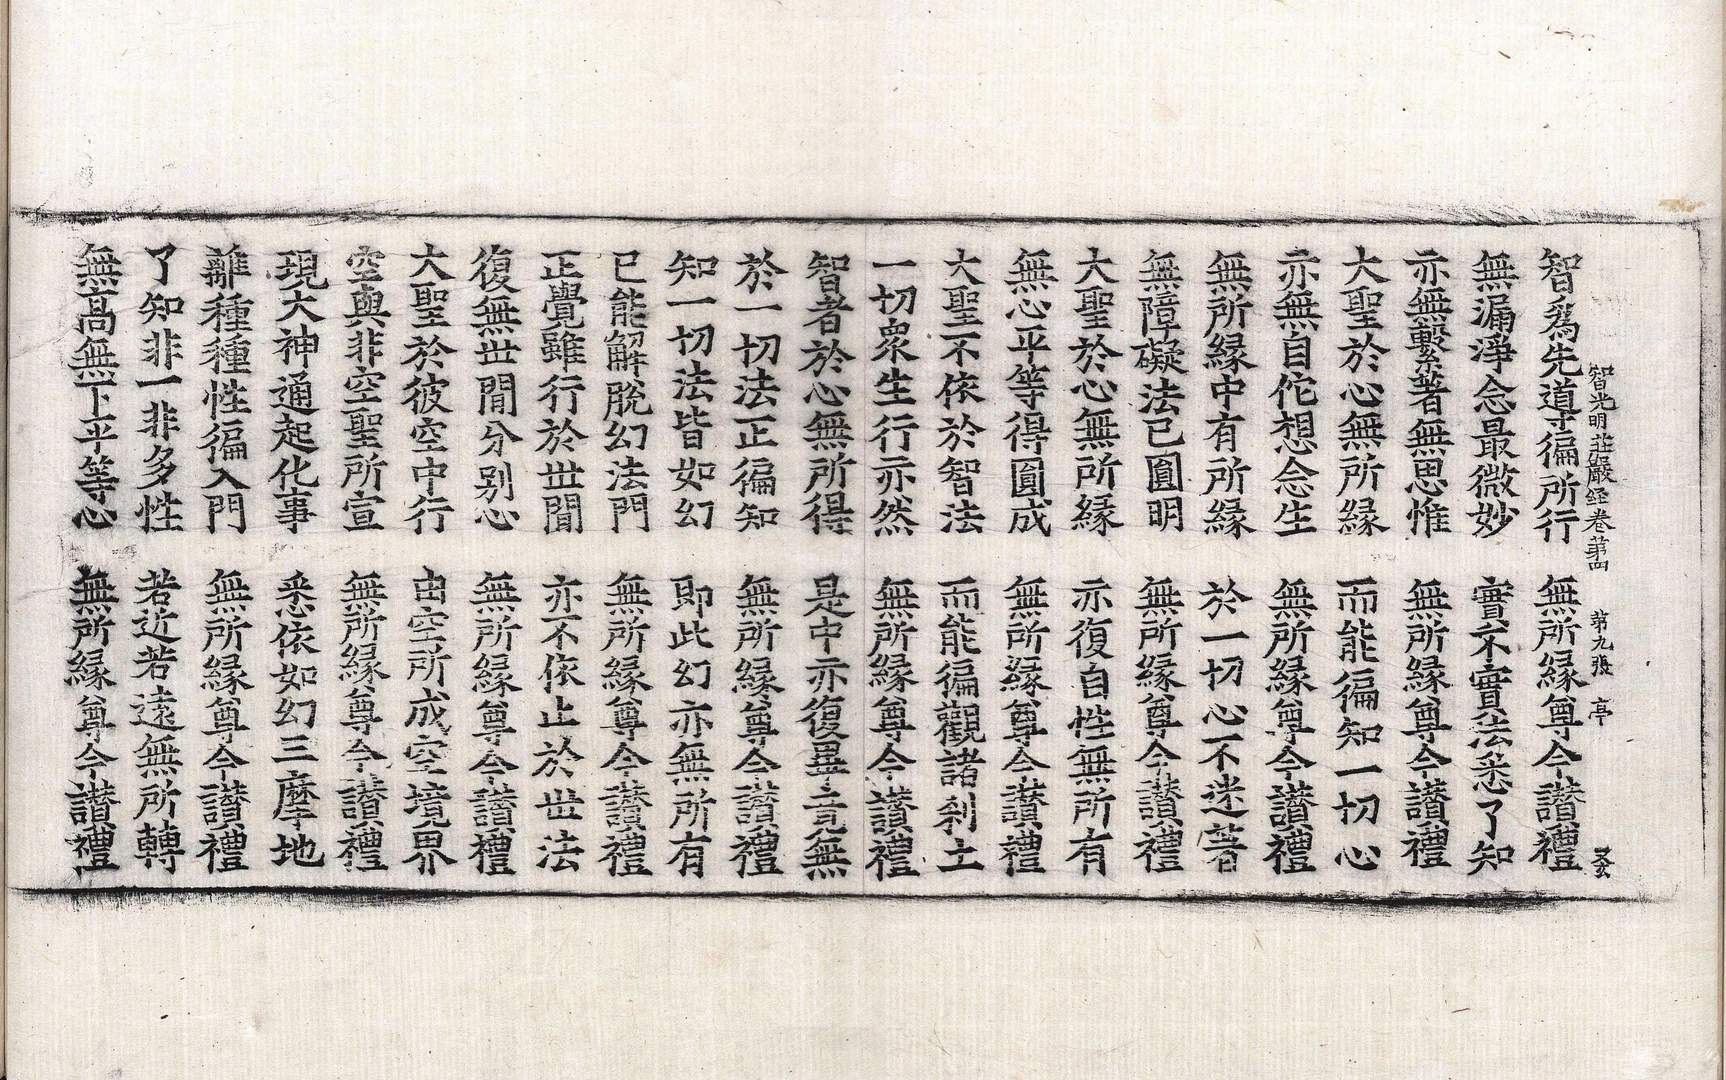 智光明莊嚴經卷第四 第九張 亭
智爲先導徧所行 無所緣尊今讃禮
無漏淨念最微妙 實不實法悉了知
亦無繫著無思惟 無所緣尊今讃禮
大聖於心無所緣 而能徧知一切心
亦無自佗想念生 無所緣尊今讃禮
無所緣中有所緣 於一切心不迷著
無障礙法已圓明 無所緣尊今讃禮
大聖於心無所緣 亦復自性無所有
無心平等得圓成 無所緣尊今讃禮
大聖不依於智法 而能徧觀諸刹土
一切衆生行亦然 無所緣尊今讃禮
智者於心無所得 是中亦復畢竟無
於一切法正徧知 無所緣尊今讃禮
知一切法皆如幻 即此幻亦無所有
已能解脫幻法門 無所緣尊今讃禮
正覺雖行於世間 亦不依止於世法
復無世間分别心 無所緣尊今讃禮
大聖於彼空中行 由空所成空境界
空與非空聖所宣 無所緣尊今讃禮
現大神通起化事 悉依如幻三摩地
離種種性徧入門 無所緣尊今讃禮
了知非一非多性 若近若遠無所轉
無高無下平等心 無所緣尊今讃禮